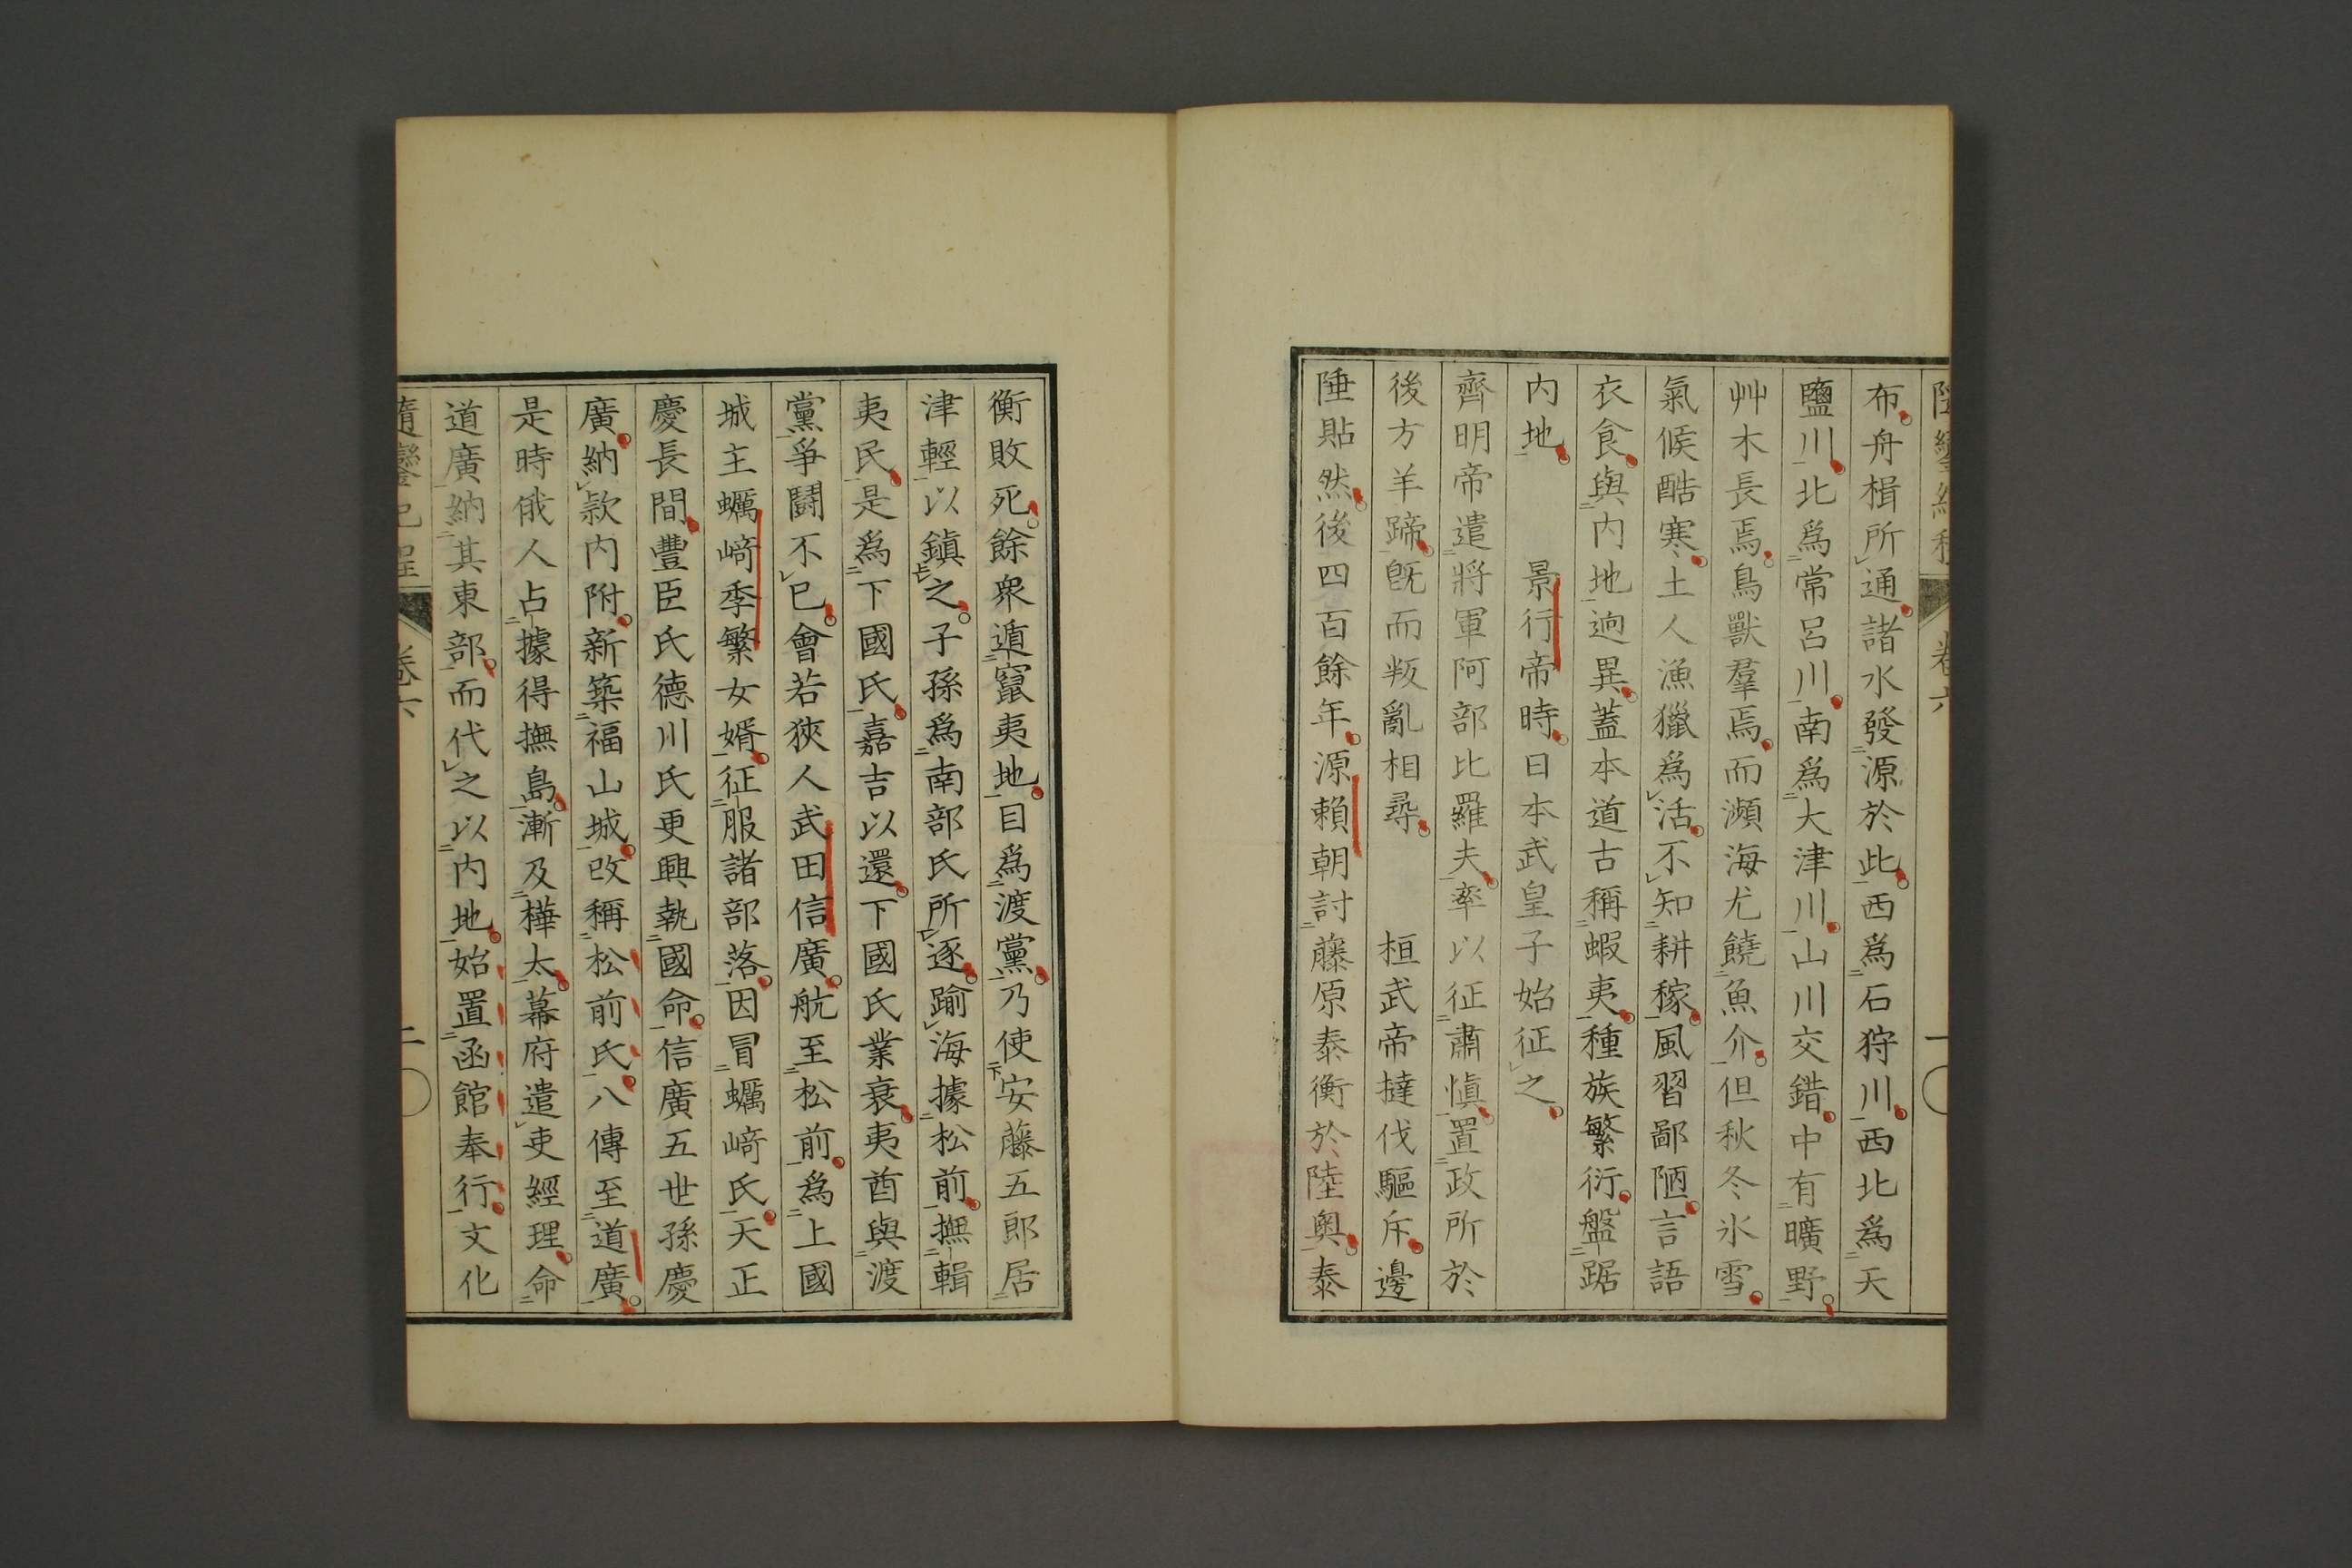 布舟楫所通諸水發源於此西爲石狩川西北爲天
鹽川北爲常呂川南爲大津川山川交錯中有曠野
艸木長焉鳥獸羣焉而瀕海尤饒魚介但秋冬氷雪
氣候酷寒土人漁獵爲活不知耕稼風習鄙陋言語
衣食與内地逈異蓋本道古稱蝦夷種族繁衍盤踞
内地　景行帝時日本武皇子始征之
齊明帝遣將軍阿部比羅夫率以征肅愼置政所於
後方羊蹄旣而叛亂相尋　桓武帝撻伐驅斥邊
陲貼然後四百餘年源賴朝討藤原泰衡於陸奧泰
衡敗死餘衆遁竄夷地目爲渡黨乃使安藤五郎居
津輕以鎭之子孫爲南部氏所逐踰海據松前撫輯
夷民是爲下國氏嘉吉以還下國氏業衰夷酋與渡
黨爭鬪不已會若狹人武田信廣航至松前爲上國
城主蠣﨑季繁女婿征服諸部落因冒蠣﨑氏天正
慶長間豐臣氏德川氏更興執國命信廣五世孫慶
廣納款内附新築福山城改稱松前氏八傳至道廣
是時俄人占據得撫島漸及樺太幕府遣吏經理命
道廣納其東部而代之以内地始置函館奉行文化
隨鑾紀程
卷六
二